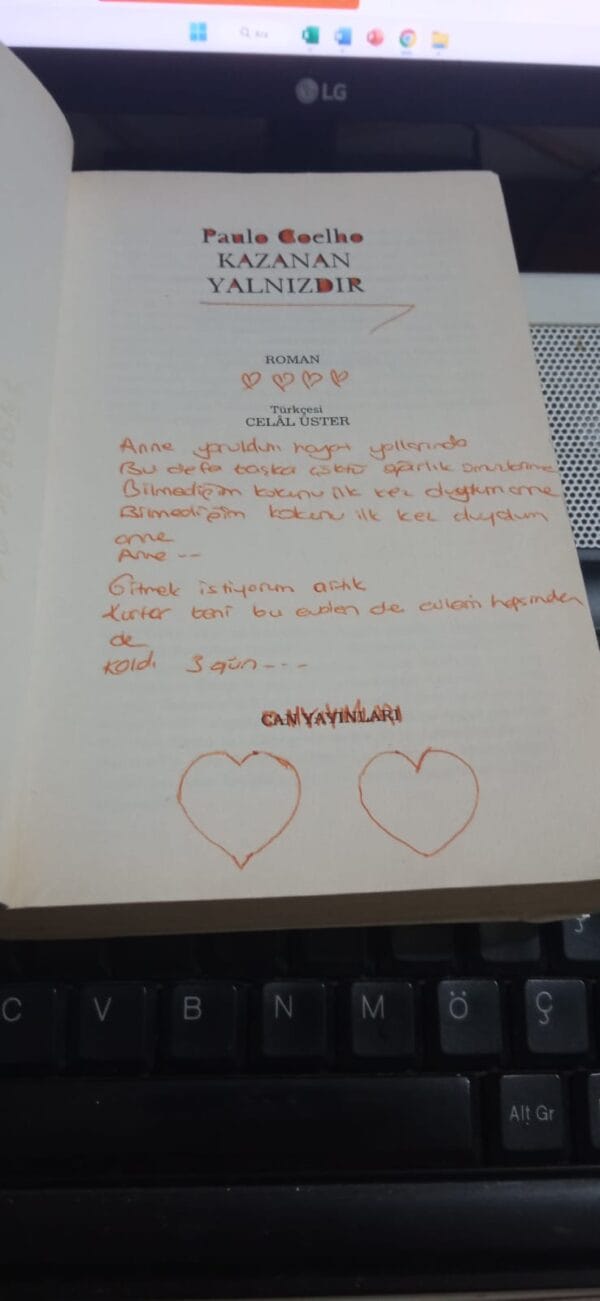 Ara
LG
Paulo Coelho
KAZANAN
YALNIZDIR
ROMAN
Türkçesi
CELÂL ÜSTER
Anne yoruldum hayat yollarında
Bu defa başka çöktü ağırlık omuzlarıma
Bilmediğim kokunu ilk kez duydum anne
Bilmediğim kokunu ilk kez duydum
anne
Anne --
Gitmek istiyorum artık
Kurtar beni bu evden de evlerin hepsinden
de
Kaldı 3 gün ---
CAN YAYINLARI
Ş
C V B N M Ö Ç
Alt Gr